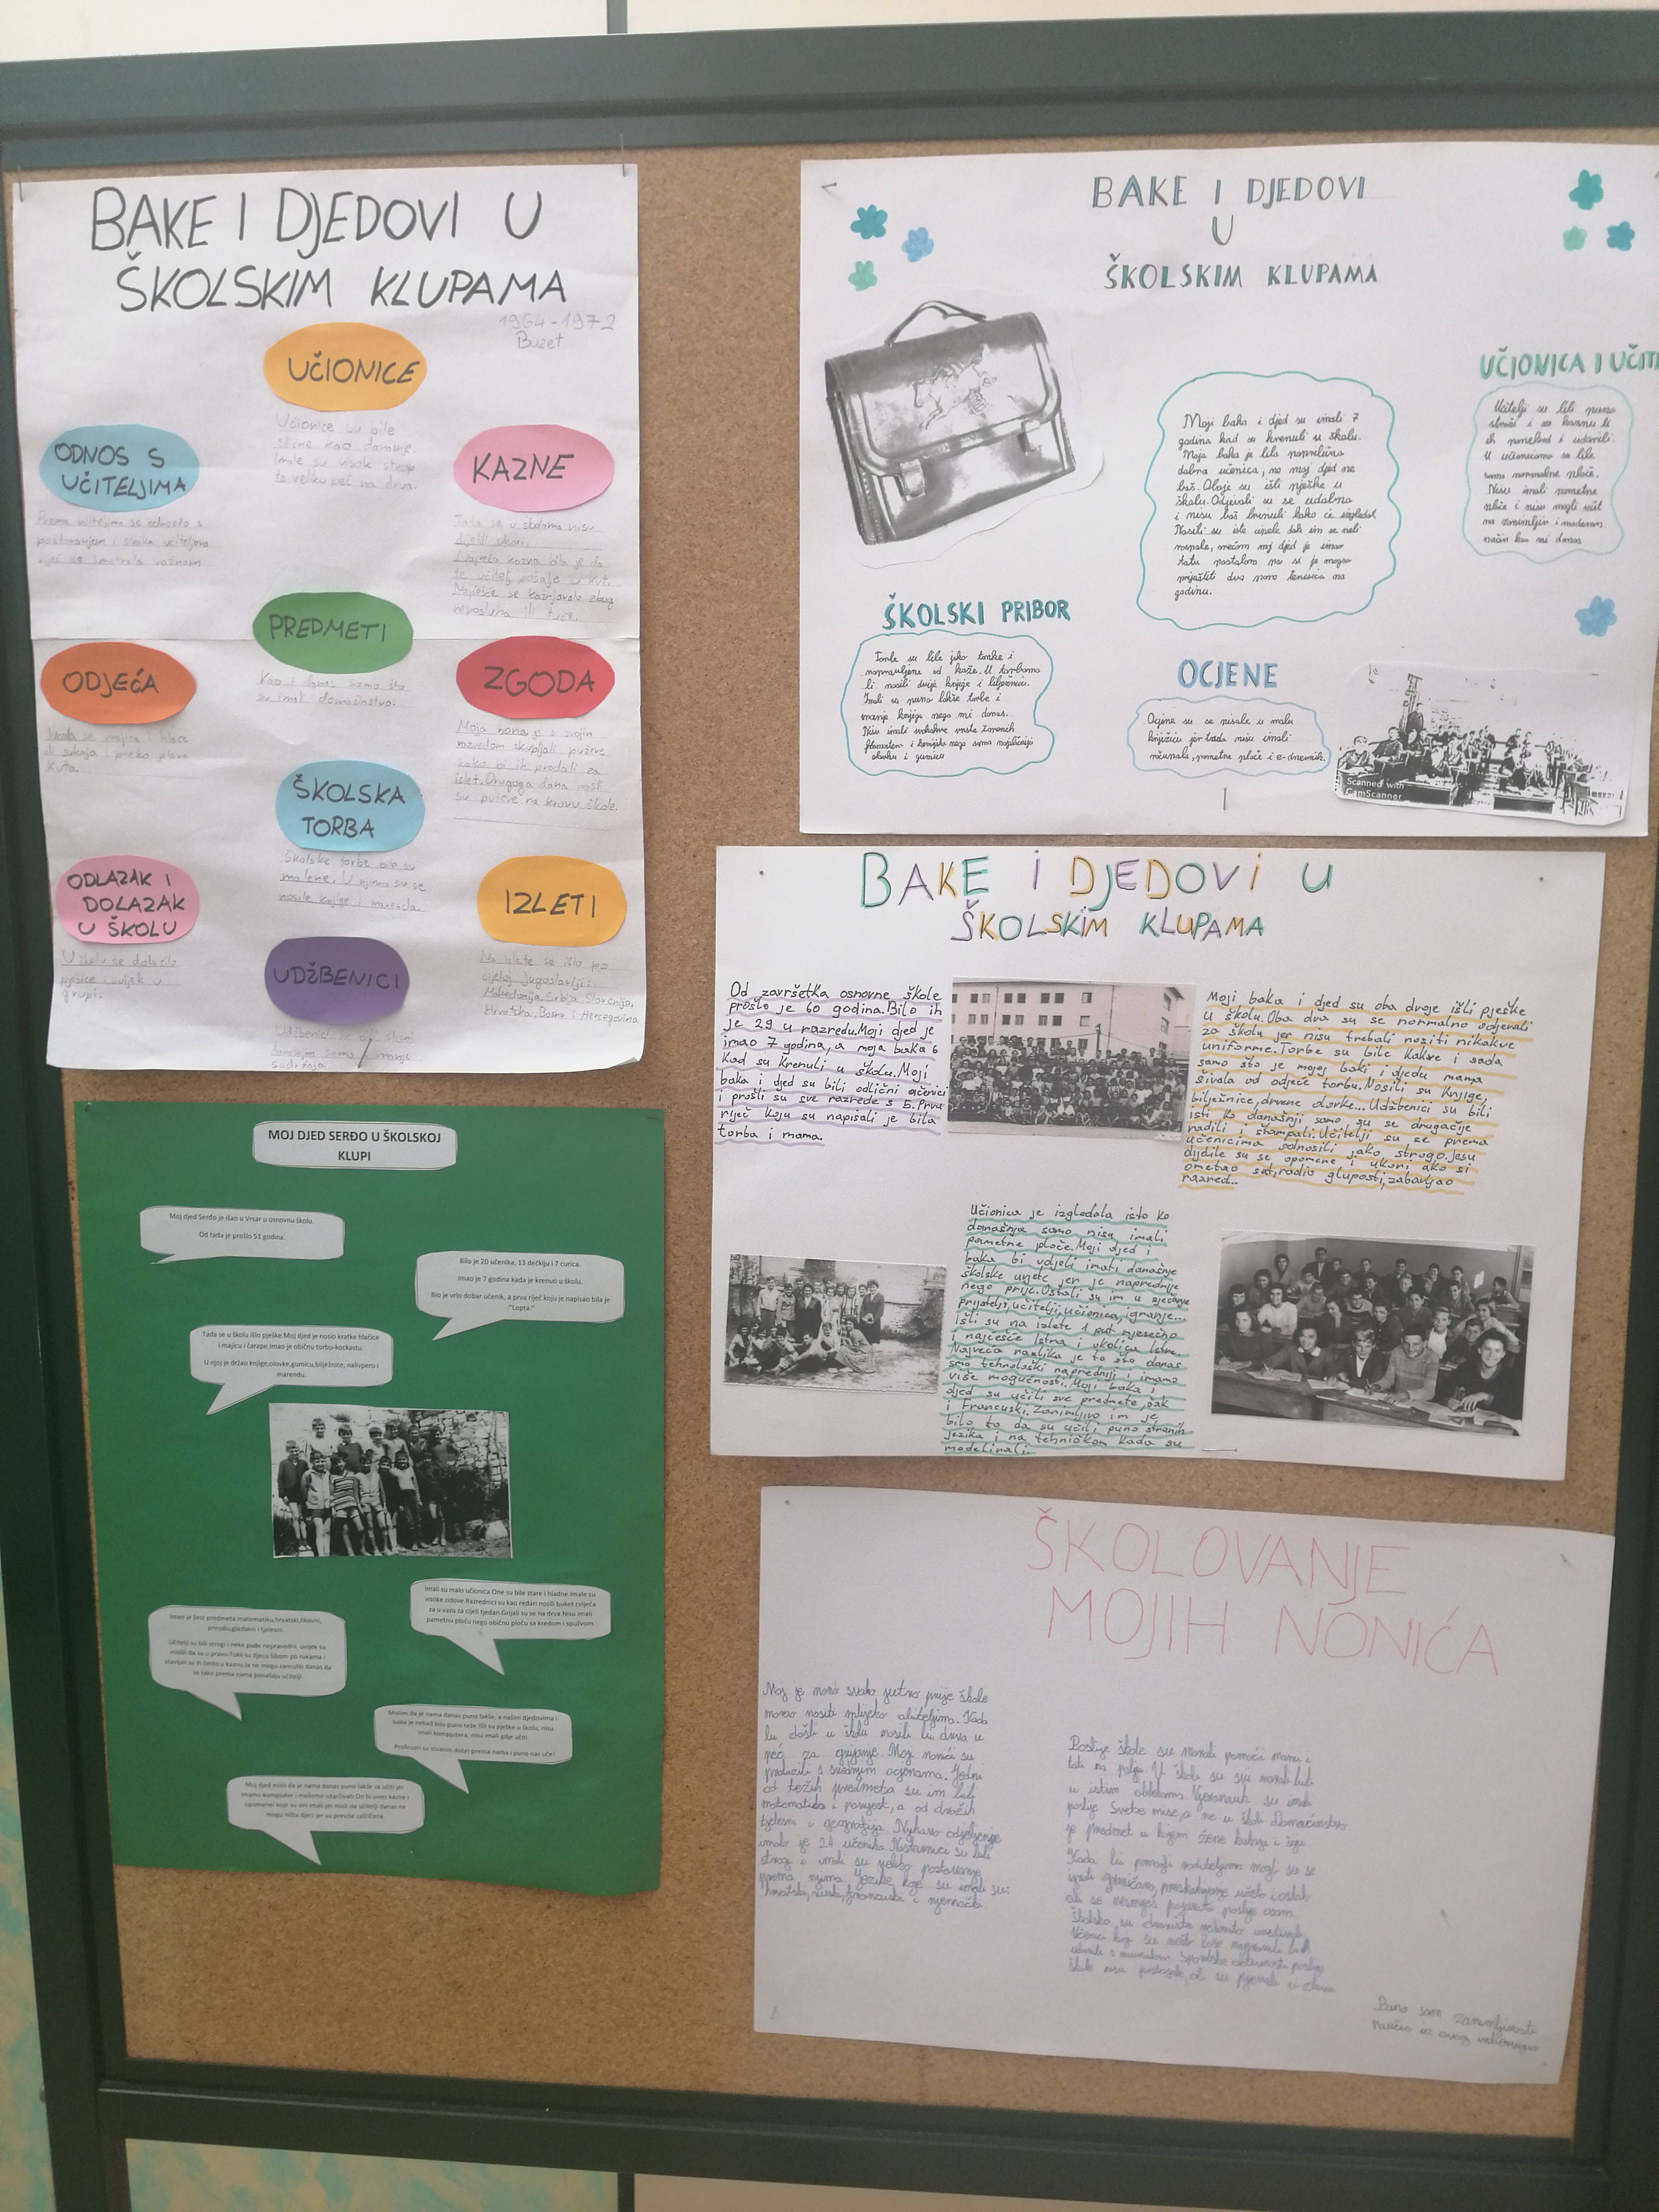 BAKE I DJEDOVI U
ŠKOLSKIM KLUPAMA
1964-1972
Buzet
UČIONICE
Učionice su bile
slične kao današnje.
Imale su visok strop
te veliku peć na drva.
ODNOS S
UČITELJIMA
Prema učiteljima se odnosilo s
poštovanjem i svaka učiteljeva
riječ se smatrala važnom
KAZNE
Tada se u školama nisu
dijelili ukori.
Najveća kazna bila je da
te učitelj pošalje u kut.
Najčešće se kažnjavalo zbog
neposluha ili tuče.
PREDMETI
Kao i danas samo što
su imali domaćinstvo.
ODJEĆA
majica i hlače
ili suknja i preko plava
kuta.
ZGODA
Moja nona je s svojim
razredom skupljali puževe
kako bi ih prodali za
izlet. Drugoga dana našli
su puževe na krovu škole.
ŠKOLSKA
TORBA
Školske torbe bile su
malene. U njima su se
nosile knjige i marenda.
ODLAZAK I
DOLAZAK
U ŠKOLU
U školu se dolazilo
pješice i uvijek u
grupi.
IZLETI
Na izlete se išlo po
cijeloj Jugoslaviji:
Makedonija, Srbija, Slovenija,
Hrvatska, Bosna i Hercegovina
UDŽBENICI
Udžbenici su bili slični
današnjim samo manje
sadržaja
BAKE I DJEDOVI
U
ŠKOLSKIM KLUPAMA
Moji baka i djed su imali 7
godina kad su krenuli u školu.
Moja baka je bila poprilično
dobra učenica, no moj djed ne
baš. Oboje su išli pješke u
školu. Odjevali su se udobno
i nisu baš brinuli kako će izgledat
Nosili su iste cipele dok im se nebi
raspale, srećom moj djed je imao
tatu postolara pa si je mogao
priuštiti dva para tenisica na
godinu.
UČIONICA I UČIT
Učitelji su bili puno
stroži i za kaznu bi
ih ponekad i udarili.
U učionicama su bile
samo normalne ploče.
Nisu imali pametne
ploče i nisu mogli učit
na zanimljiv i moderan
način kao mi danas
ŠKOLSKI PRIBOR
Torbe su bile jako tanke i
napravljene od kože. U torbama
bi nosili dvije knjige i bilježnicu.
Imali su puno lakše torbe i
manje knjiga nego mi danas.
Nisu imali svakakve vrste
flomastera i kemijski nego samo najobičniju
olovku i gumicu
OCJENE
Ocjene su se pisale u malu
knjižicu jer tada nisu imali
računala, pametne ploče i e-dnevnik.
Scanned with
CamScanner
BAKE I DJEDOVI U
ŠKOLSKIM KLUPAMA
Od završetka osnovne škole
prošlo je 60 godina. Bilo ih
je 29 u razredu. Moji djed je
imao 7 godina, a moja baka 6
kad su krenuli u školu. Moji
baka i djed su bili odlični učenici
i prošli su sve razrede s 5. Prvu
riječ koju su napisali je bila
torba i mama.
Moji baka i djed su oba dvoje išli pješke
u školu. Oba dva su se normalno odjevali
za školu jer nisu trebali nositi nikakve
uniforme. Torbe su bile kakve i sada
samo što je mojoj baki i djedu mama
šivala od odjeće torbu. Nosili su knjige,
bilježnice, drvene olovke... Udžbenici su bili
isti ko današnji samo su se drugačije
radili i štampali. Učitelji su se prema
učenicima odnosili jako strogo. Jesu
dijdile su se opomene i ukori ako si
ometao sat, radio gluposti, zabavljao
razred...
Učionica je izgledala isto ko
današnja samo nisu imali
pametne ploče. Moji djed i
baka bi voljeli imati današnje
školske uvjete jer je naprednije
nego prije. Ostali su im u sjećanje
prijatelji, učitelji, učionica, igranje...
Išli su na izlete 1 put mjesečno
i najčešće Istra i okolica Istre.
Najveća razlika je to što danas
smo tehnološki napredniji i imamo
više mogućnosti. Moji baka i
djed su učili sve predmete, čak
i Francuski. Zanimljivo im je
bilo to da su učili puno stranih
jezika i na tehničkom kada su
modelirali.
MOJ DJED SERĐO U ŠKOLSKOJ
KLUPI
Moj djed Serđo je išao u Vrsar u osnovnu školu.
Od tada je prošlo 51 godina.
Bilo je 20 učenika, 13 dečkiju i 7 curica.
Imao je 7 godina kada je krenuo u školu.
Bio je vrlo dobar učenik, a prva riječ koju je napisao bila je
:"Lopta."
Tada se u školu išlo pješke.Moj djed je nosio kratke hlačice
i majicu i čarape.Imao je običnu torbu-kockastu.
U njoj je držao knjige,olovke,gumicu,bilježnice, nalivpero i
marendu.
Imali su malo učionica.One su bile stare i hladne.Imale su
visoke zidove.Razrednici su kao redari nosili buket cvijeća
za u vazu za cijeli tjedan.Grijali su se na drva.Nisu imali
pametnu ploču nego običnu ploču sa kredom i spužvom
Imao je šest predmeta:matematiku,hrvatski,likovni,
prirodu,glazbeni i tjelesni.
Učitelji su bili strogi i neke pude nepravedni, uvijek su
mislili da su u pravu.Tukli su djecu šibom po rukama i
stavljali su ih često u kaznu.Ja ne mogu zamisliti danas da
se tako prema nama ponašaju učitelji.
Mislim da je nama danas puno lakše, a našim djedovima i
baka je nekad bilo puno teže.Išli su pješke u školu, nisu
imali kompjutera, nisu imali gdje učiti
Profesori su stvarno dobri prema nama i puno nas uče!
Moj djed misli da je nama danas puno lakše za učiti jer
imamo kompjuter i možemo istarživati.On bi uveo kazne i
opomenei koje su oni imali jer misli da učitelji danas ne
mogu ništa djeci jer su previše zaštićena.
ŠKOLOVANJE
MOJIH NONIĆA
Moj je nono svako jutro prije škole
morao nositi mlijeko obiteljima. Kada
bi došli u školu nosili bi drva u
peć za grijanje. Moji nonići su
prolazili s srednjim ocjenama. Jedni
od težih predmeta su im bili
matematika i povijest, a od dražih
tjelesni i geografija. Njihovo odjeljenje
imalo je 24 učenika. Nastavnici su bili
strogi i imali su veliko poštovanje
prema njima. Jezike koje su imali su:
hrvatski, ruski, francuski i njemački.
Poslije škole su morali pomoći mami i
tati na polju. U školi su svi morali biti
u istim oblekama. Vjeronauk su imali
poslije Svete mise, a ne u školi. Domaćinstvo
je predmet u kojem žene kuhaju i šiju
Kada bi pomogli roditeljima mogli su se
igrati graničara,
ali se nesmiješ pojaviti poslije osam.
Školsko su dvorište redovito uređivali.
Učenici koji su nešto loše napravili bi ih
udarili s ravnalom. Sportske aktivnosti poslije
škole nisu postojale, al su pjevali u zboru
Puno sam zanimljivosti
naučio iz ovog intervjua